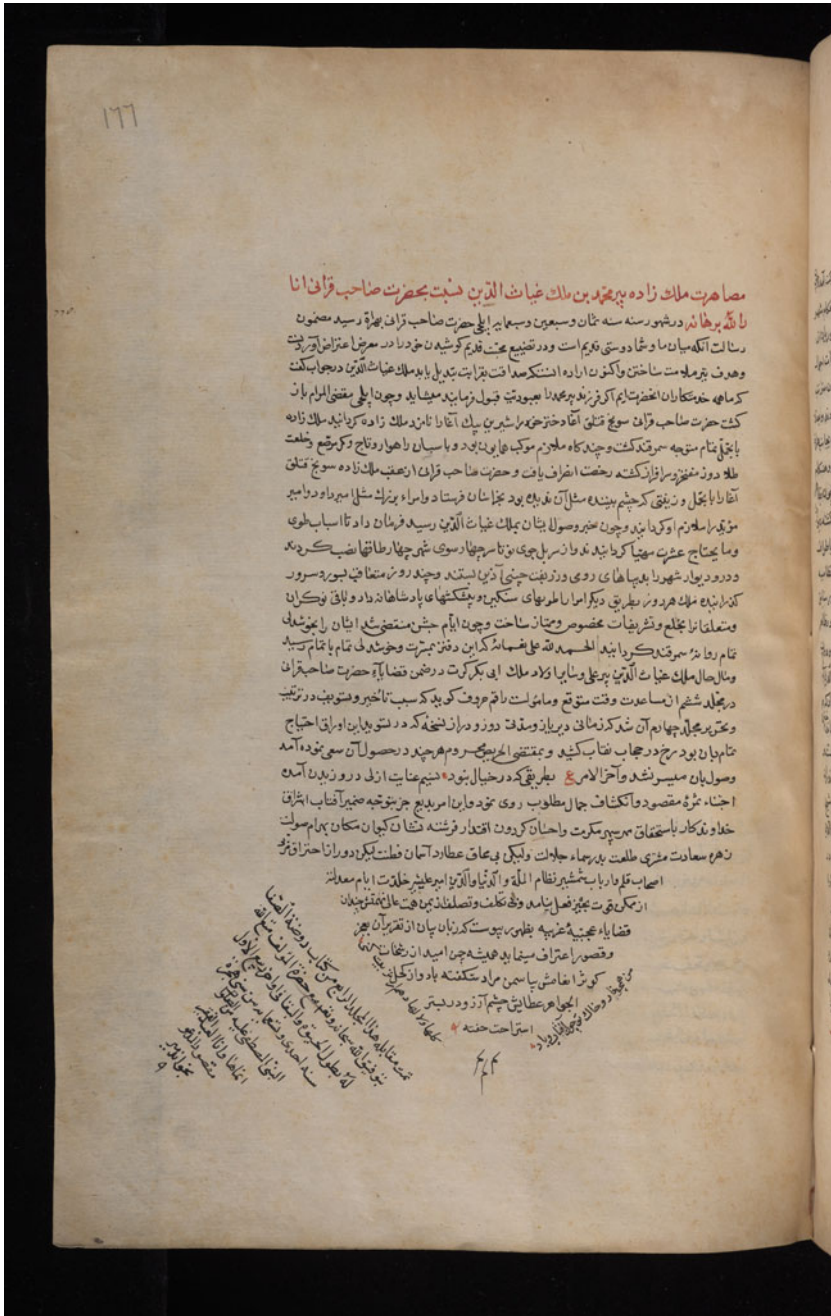 ١٦٦
مصاهرت ملك زاده پیر محمد بن ملك غیاث الدین نسبت بحضرت صاحب قرانی انا
رالله برهانه در شهور سنه ثمان وسبعین وسبعمایه ایلچی حضرت صاحب قرانی بهراة رسید مضمون
رسالت آنکه میان ما وشما دوستی قدیم است ودر تضییع محبت قدیم کوشیدن خودرا در معرض اعتراض آوردنست
وهدف تیر ملامت ساختن واکنون اراده انستکه صداقت بقرابت تبدیل یابد ملك غیاث الدین در جواب کفت
که ما همه خدمتکاران انحضرت ایم اکر فرزند پیر محمد را بعبودیت قبول فرمایند میشاید وچون ایلچی مقضی المرام باز
کشت حضرت صاحب قرانی سونج قتلق آغا دختر شیرین بیك آغا را نامزد ملك زاده کردانید ملك زاده
با تجملی تمام متوجه سمرقند کشت وچند کاه ملازم موکب همایون بود وباسبان راهوار وتاج وکمر مرصع وخلعت
طلا دوز مفتخر وسرافراز کشته رخصت انصراف یافت وحضرت صاحب قرانی از عقب ملك زاده سونج قتلق
آغا را با تجمل وزینتی که چشم بیننده مثل آن ندیده بود بخراسان فرستاد وامراء بزرك مثل امیر داود وامیر
مؤید را ملازم او کردانید وچون خبر وصول ایشان بملك غیاث الدین رسید فرمان داد تا اسباب طوی
وما یحتاج عشرت مهیا کردانیدند واز سر پل جوی نو تا سر چهار سوی شهر چهار طاقها نصب کردند
ودر ودیوار شهر را بدیباهای رومی وزربفت چینی آذین بستند وچند روز متعاقب بسور وسرور
کذرانیده ملك هر روز بطریق دیکر امرا را طویهای سنکین وپیشکشهای پادشاهانه داد وباقی نوکران
ومتعلقانرا بخلع وتشریفات مخصوص وممتاز ساخت وچون ایام جشن منقضی شد ایشان را بخوشدلی
تمام روانهٔ سمرقند کردانید الحمد لله علی نعمائه که این دفتر بمسرت وخوشدلی تمام باتمام رسید
ومآل حال ملك غیاث الدین پیر علی وسایر اولاد ملك ابی بکر کرت در ضمن قضایاء حضرت صاحبقرانی
در مجلد ششم از مساعدت وقت متوقع ومامولست راقم حروف کوید که سبب تاخیر وتسویف در ترتیب
وتحریر مجلد چهارم آن شد که زمانی دیریاز ومدتی دور ودراز نسخهٔ که در تسوید این اوراق احتیاج
تمام بان بود رخ در حجاب نقاب کشید وبمقتضی الحریص محروم هر چند در حصول آن سعی نموده آمد
وصول بان میسر نشد وآخر الامر ع بطریقی که در خیال نبود نسیم عنایت ازلی در وزیدن آمده
اجتناء ثمرهٔ مقصود وانکشاف جمال مطلوب روی نمود واین امر بدیع جز بتوجه ضمیر آفتاب اشراق
خداوندکار باستحقاق مهر سپهر مکرمت واحسان کردون اقتدار فرشته نشان کیوان مکان بهرام صولت
زهره سعادت مشتری طلعت بدر سماء جلالت ولیکن بی محاق عطارد آسمان فطنت لیکن دور از احتراق
اصحاب قلم وارباب شمشیر نظام الملة والدنیا والدین امیر علیشیر خلدت ایام معدلته
از ممکن قوت بحیز فعل نیامد وبی تکلف وتصلف از یمن همت عالی نهمتش چندان
قضایاء عجیبهٔ غریبه بظهور پیوست که زبان بیان از تقریر آن بعجز
وقصور اعتراف مینماید همیشه چمن امید از رشحات
کوثر انعامش یاسمن مراد شکفته باد واز کحل
الجواهر عطایش چشم آرزو در بستر
استراحت خفته
تمت مقابله هذا المجلد الرابع من کتاب روضة الصفا
بتوفیق الله سبحانه وتعالی مع حضرة المؤلف متع الله
له بطول الحیوة والبقا فی اواخر ربیع الاول
سنه احدی وتسعمایه من سنی هجرة
النبی المصطفی علیه من الصلوة
انماها وانا العبد الفقیر
بخواندمیر